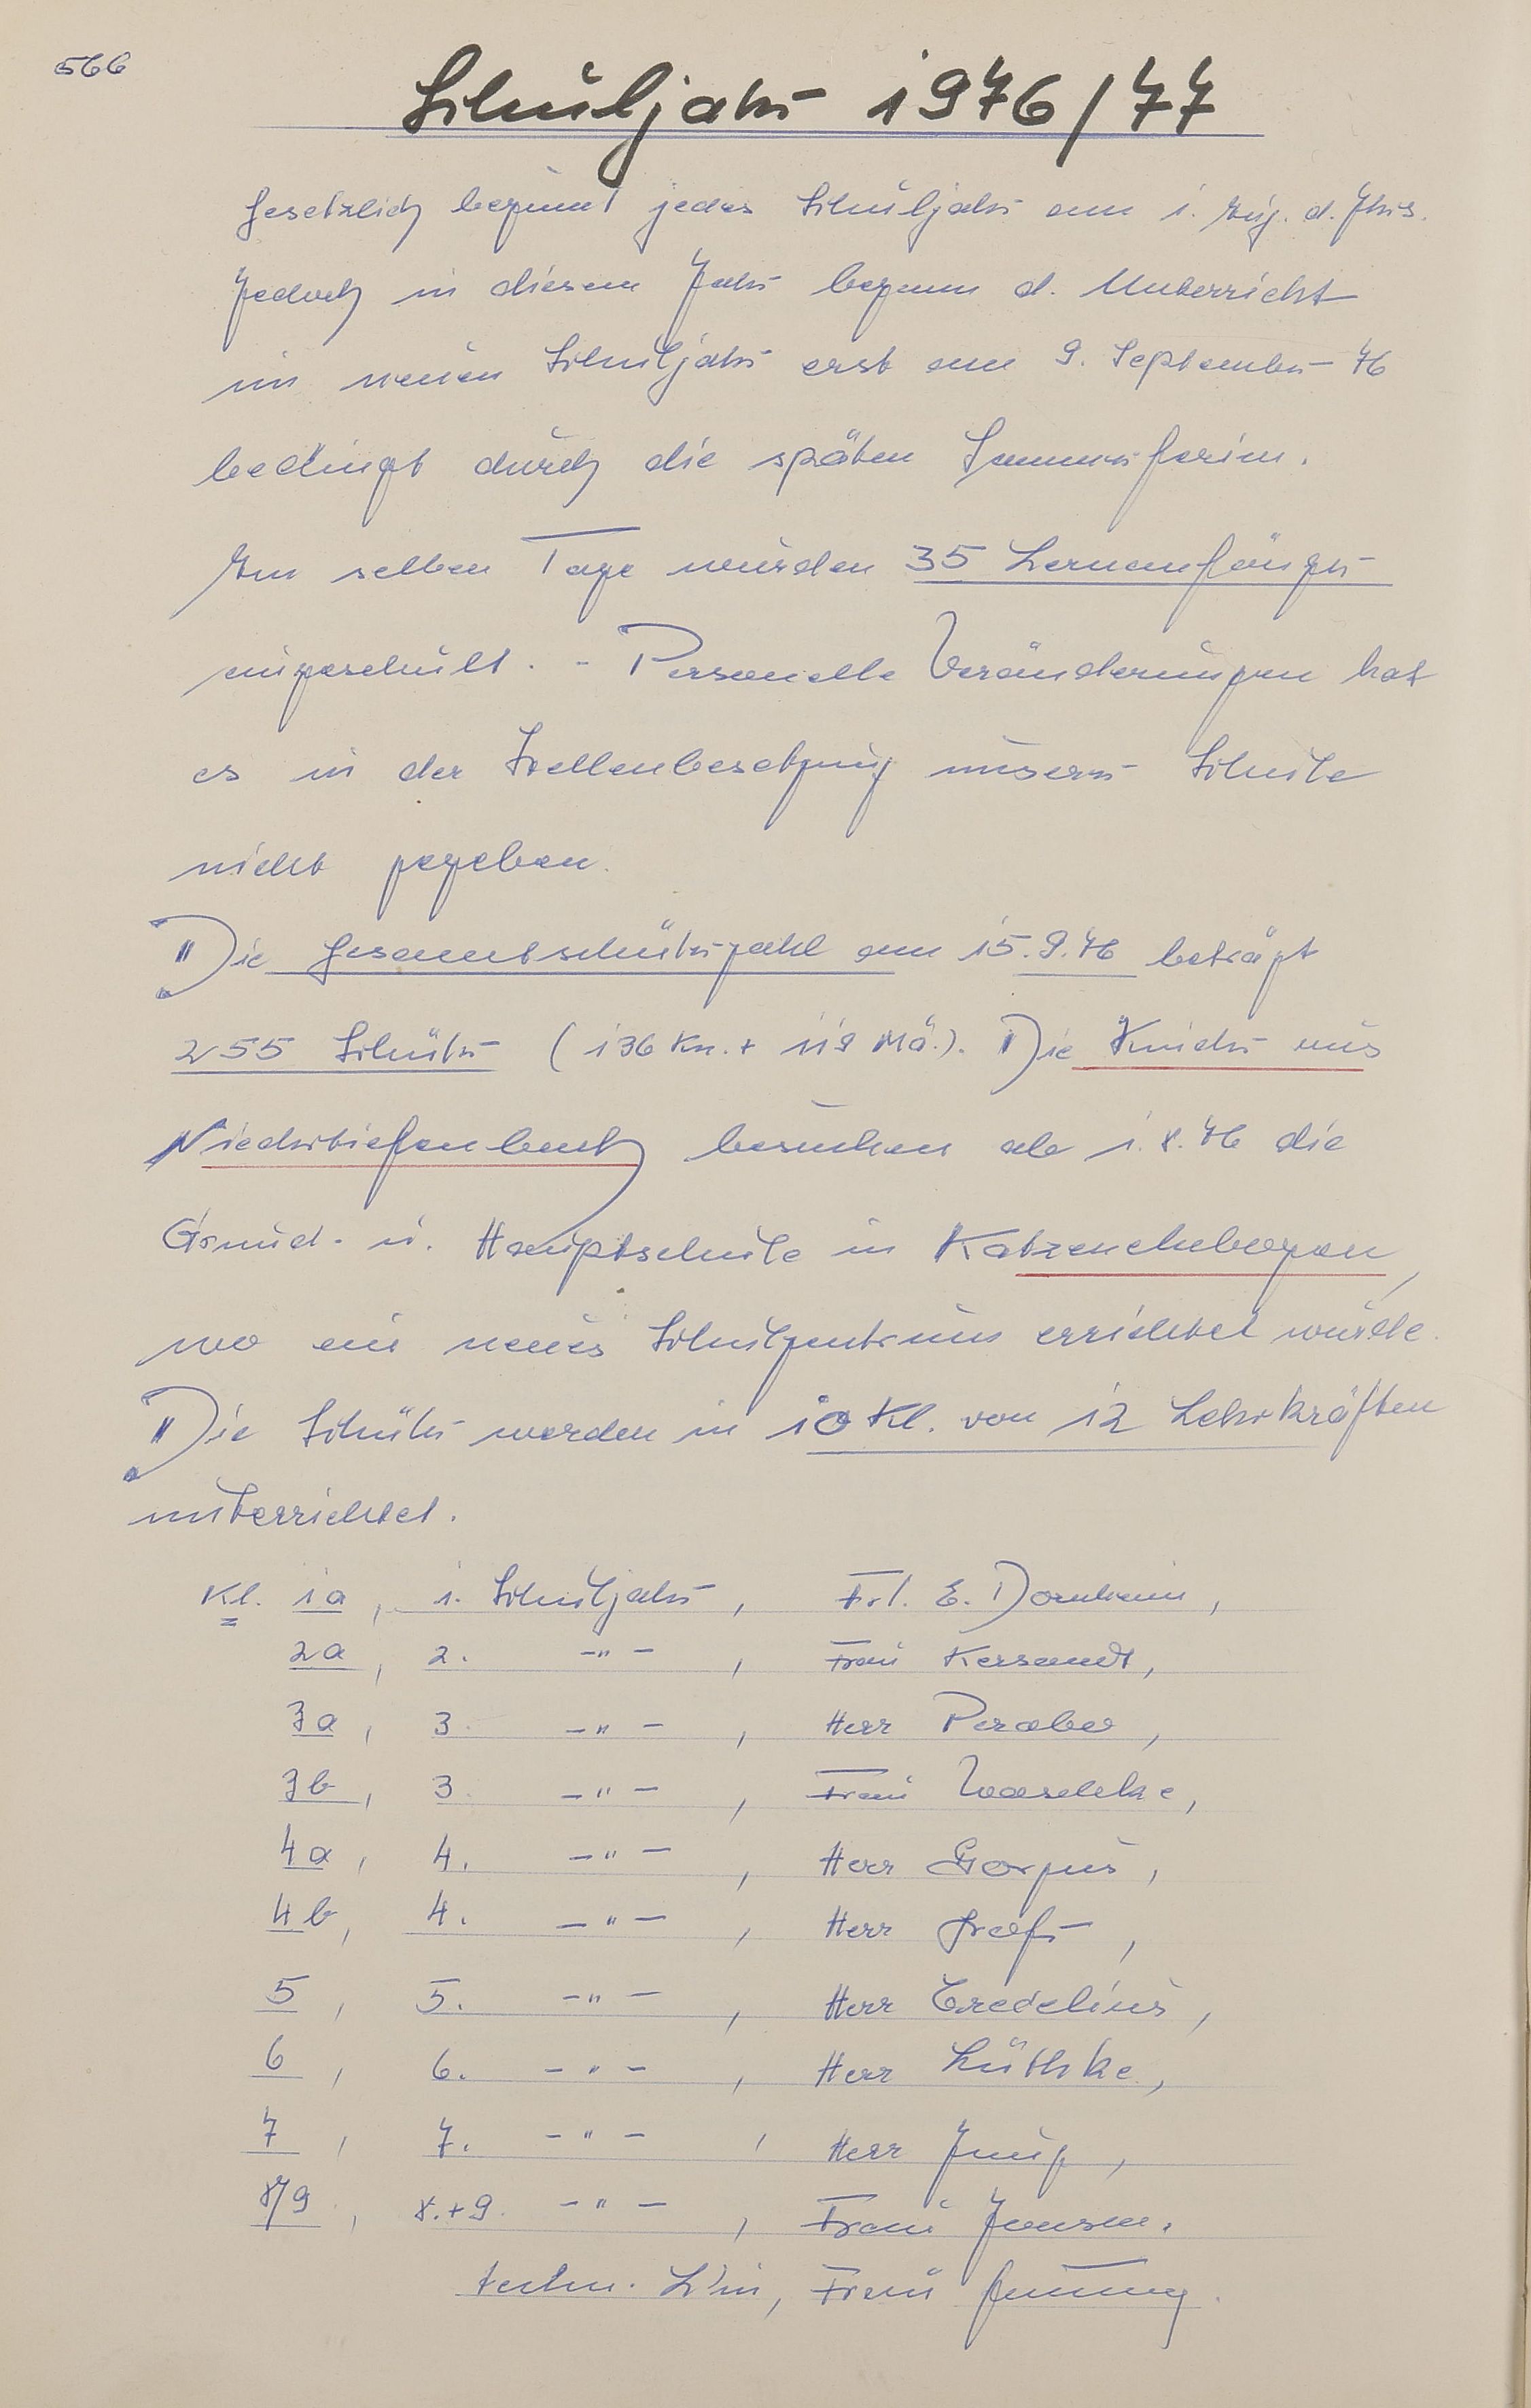 566
Schuljahr 1976/77
Gesetzlich beginnt jedes Schuljahr am 1. Aug. d. Jhrs.
Jedoch in diesem Jahr begann d. Unterricht
im neuen Schuljahr erst am 9. September 76
bedingt durch die späten Sommerferien.
Am selben Tage wurden 35 Lernanfänger
eingeschult. - Personelle Veränderungen hat
es in der Stellenbesetzung unserer Schule
nicht gegeben.
Die Gesamtschülerzahl am 15.9.76 beträgt
255 Schüler (136 Kn. + 119 Mä.). Die Kinder aus
Niedertiefenbach besuchen ab 1.8.76 die
Grund- u. Hauptschule in Katzenelnbogen,
wo ein neues Schulzentrum errichtet wurde.
Die Schüler werden in 10 Kl. von 12 Lehrkräften
unterrichtet.
Kl. 1a, 1. Schuljahr, Frl. E. Dornheim,
2a, 2. -"- , Frau Kersandt,
3a, 3. -"- , Herr Perabo,
3b, 3. -"- , Frau Waschke,
4a, 4. -"- , Herr Gorgus,
4b, 4. -"- , Herr Graefer,
5, 5. -"- , Herr Credelius,
6, 6. -"- , Herr Lüthke,
7, 7. -"- , Herr Jung,
8/9, 8.+9. -"- , Frau Jansen.
techn. L'in, Frau